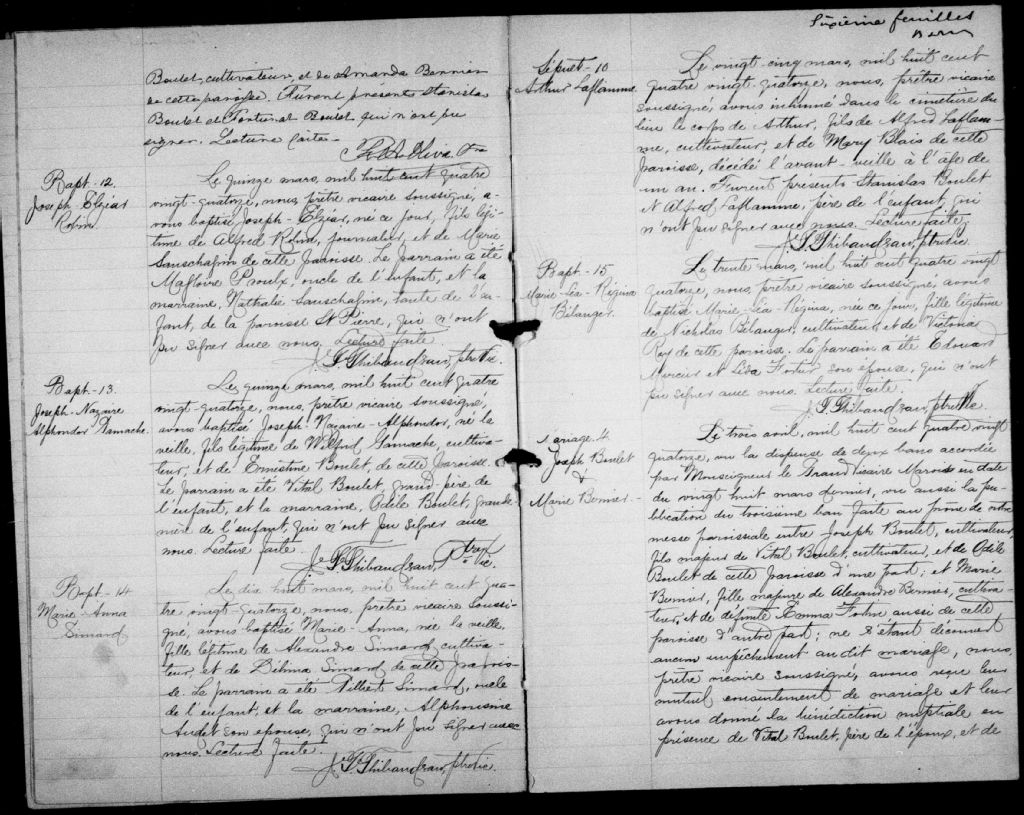 Boulet, cultivateur, et de Amanda Bernier
de cette paroisse. Furent présents Stanislas
Boulet et Fortunat Boulet qui n'ont pu
signer. Lecture faite.
Bapt - 12.
Joseph-Elzéar
Robin.
Le quinze mars, mil huit cent quatre
vingt-quatorze, nous, prêtre vicaire soussigné, a-
vons baptisé Joseph-Elzéar, né ce jour, fils légi-
time de Alfred Robin, journalier, et de Marie
Sanschagrin de cette paroisse. Le parrain a été
Magloire Proulx, oncle de l'enfant, et la
marraine, Nathalie Sanschagrin, tante de l'en-
fant, de la paroisse St Pierre, qui n'ont
pu signer avec nous. Lecture faite.
J. T. Thibaudeau, ptre vic.
Bapt - 13.
Joseph-Nazaire
Alphondor Gamache.
Le quinze mars, mil huit cent quatre
vingt-quatorze, nous, prêtre vicaire soussigné,
avons baptisé Joseph-Nazaire-Alphondor, né la
veille, fils légitime de Wilfrid Gamache, cultiva-
teur, et de Ernestine Boulet, de cette paroisse.
Le parrain a été Vital Boulet, grand-père de
l'enfant, et la marraine, Odile Boulet, grand-
mère de l'enfant, qui n'ont pu signer avec
nous. Lecture faite.
J. T. Thibaudeau, ptre vic.
Bapt - 14
Marie-Anna
Simard
Le dix huit mars, mil huit cent qua-
tre vingt-quatorze, nous, prêtre vicaire soussi-
gné, avons baptisé Marie-Anna, née la veille,
fille légitime de Alexandre Simard cultiva-
teur, et de Délima Simard de cette parois-
se. Le parrain a été Philbert Simard, oncle
de l'enfant, et la marraine, Alphonsine
Audet son épouse, qui n'ont pu signer avec
nous. Lecture faite.
J. T. Thibaudeau, ptre vic.
Sixième feuillet
Sépult - 10
Arthur Laflamme.
Le vingt-cinq mars, mil huit cent
quatre vingt-quatorze, nous, prêtre vicaire
soussigné, avons inhumé dans le cimetière du
lieu le corps de Arthur, fils de Alfred Laflam-
me, cultivateur, et de Mary Blais de cette
paroisse, décédé l'avant-veille à l'âge de
un an. Furent présents Stanislas Boulet
et Alfred Laflamme, père de l'enfant, qui
n'ont pu signer avec nous. Lecture faite.
J. T. Thibaudeau, ptre vic.
Bapt - 15
Marie-Léa-Régina
Bélanger.
Le trente mars, mil huit cent quatre vingt
quatorze, nous, prêtre vicaire soussigné, avons
baptisé Marie-Léa-Régina, née ce jour, fille légitime
de Nicholas Bélanger, cultivateur, et de Victoria
Roy de cette paroisse. Le parrain a été Edouard
Mercier et Léda Fortin son épouse, qui n'ont
pu signer avec nous. Lecture faite.
J. T. Thibaudeau, ptre vic.
Mariage 4
Joseph Boulet
&
Marie Bernier.
Le trois avril, mil huit cent quatre vingt
quatorze, vu la dispense de deux bans accordée
par Monseigneur le Grand Vicaire Marois en date
du vingt huit mars dernier, vu aussi la pu-
blication du troisième ban faite au prône de notre
messe paroissiale entre Joseph Boulet, cultivateur,
fils majeur de Vital Boulet, cultivateur, et de Odile
Boulet de cette paroisse d'une part; et Marie
Bernier, fille majeure de Alexandre Bernier, cultiva-
teur, et de défunte Emma Fortin aussi de cette
paroisse d'autre part; ne s'étant découvert
aucun empêchement au dit mariage, nous,
prêtre vicaire soussigné, avons reçu leur
mutuel consentement de mariage et leur
avons donné la bénédiction nuptiale en
présence de Vital Boulet, père de l'époux, et de